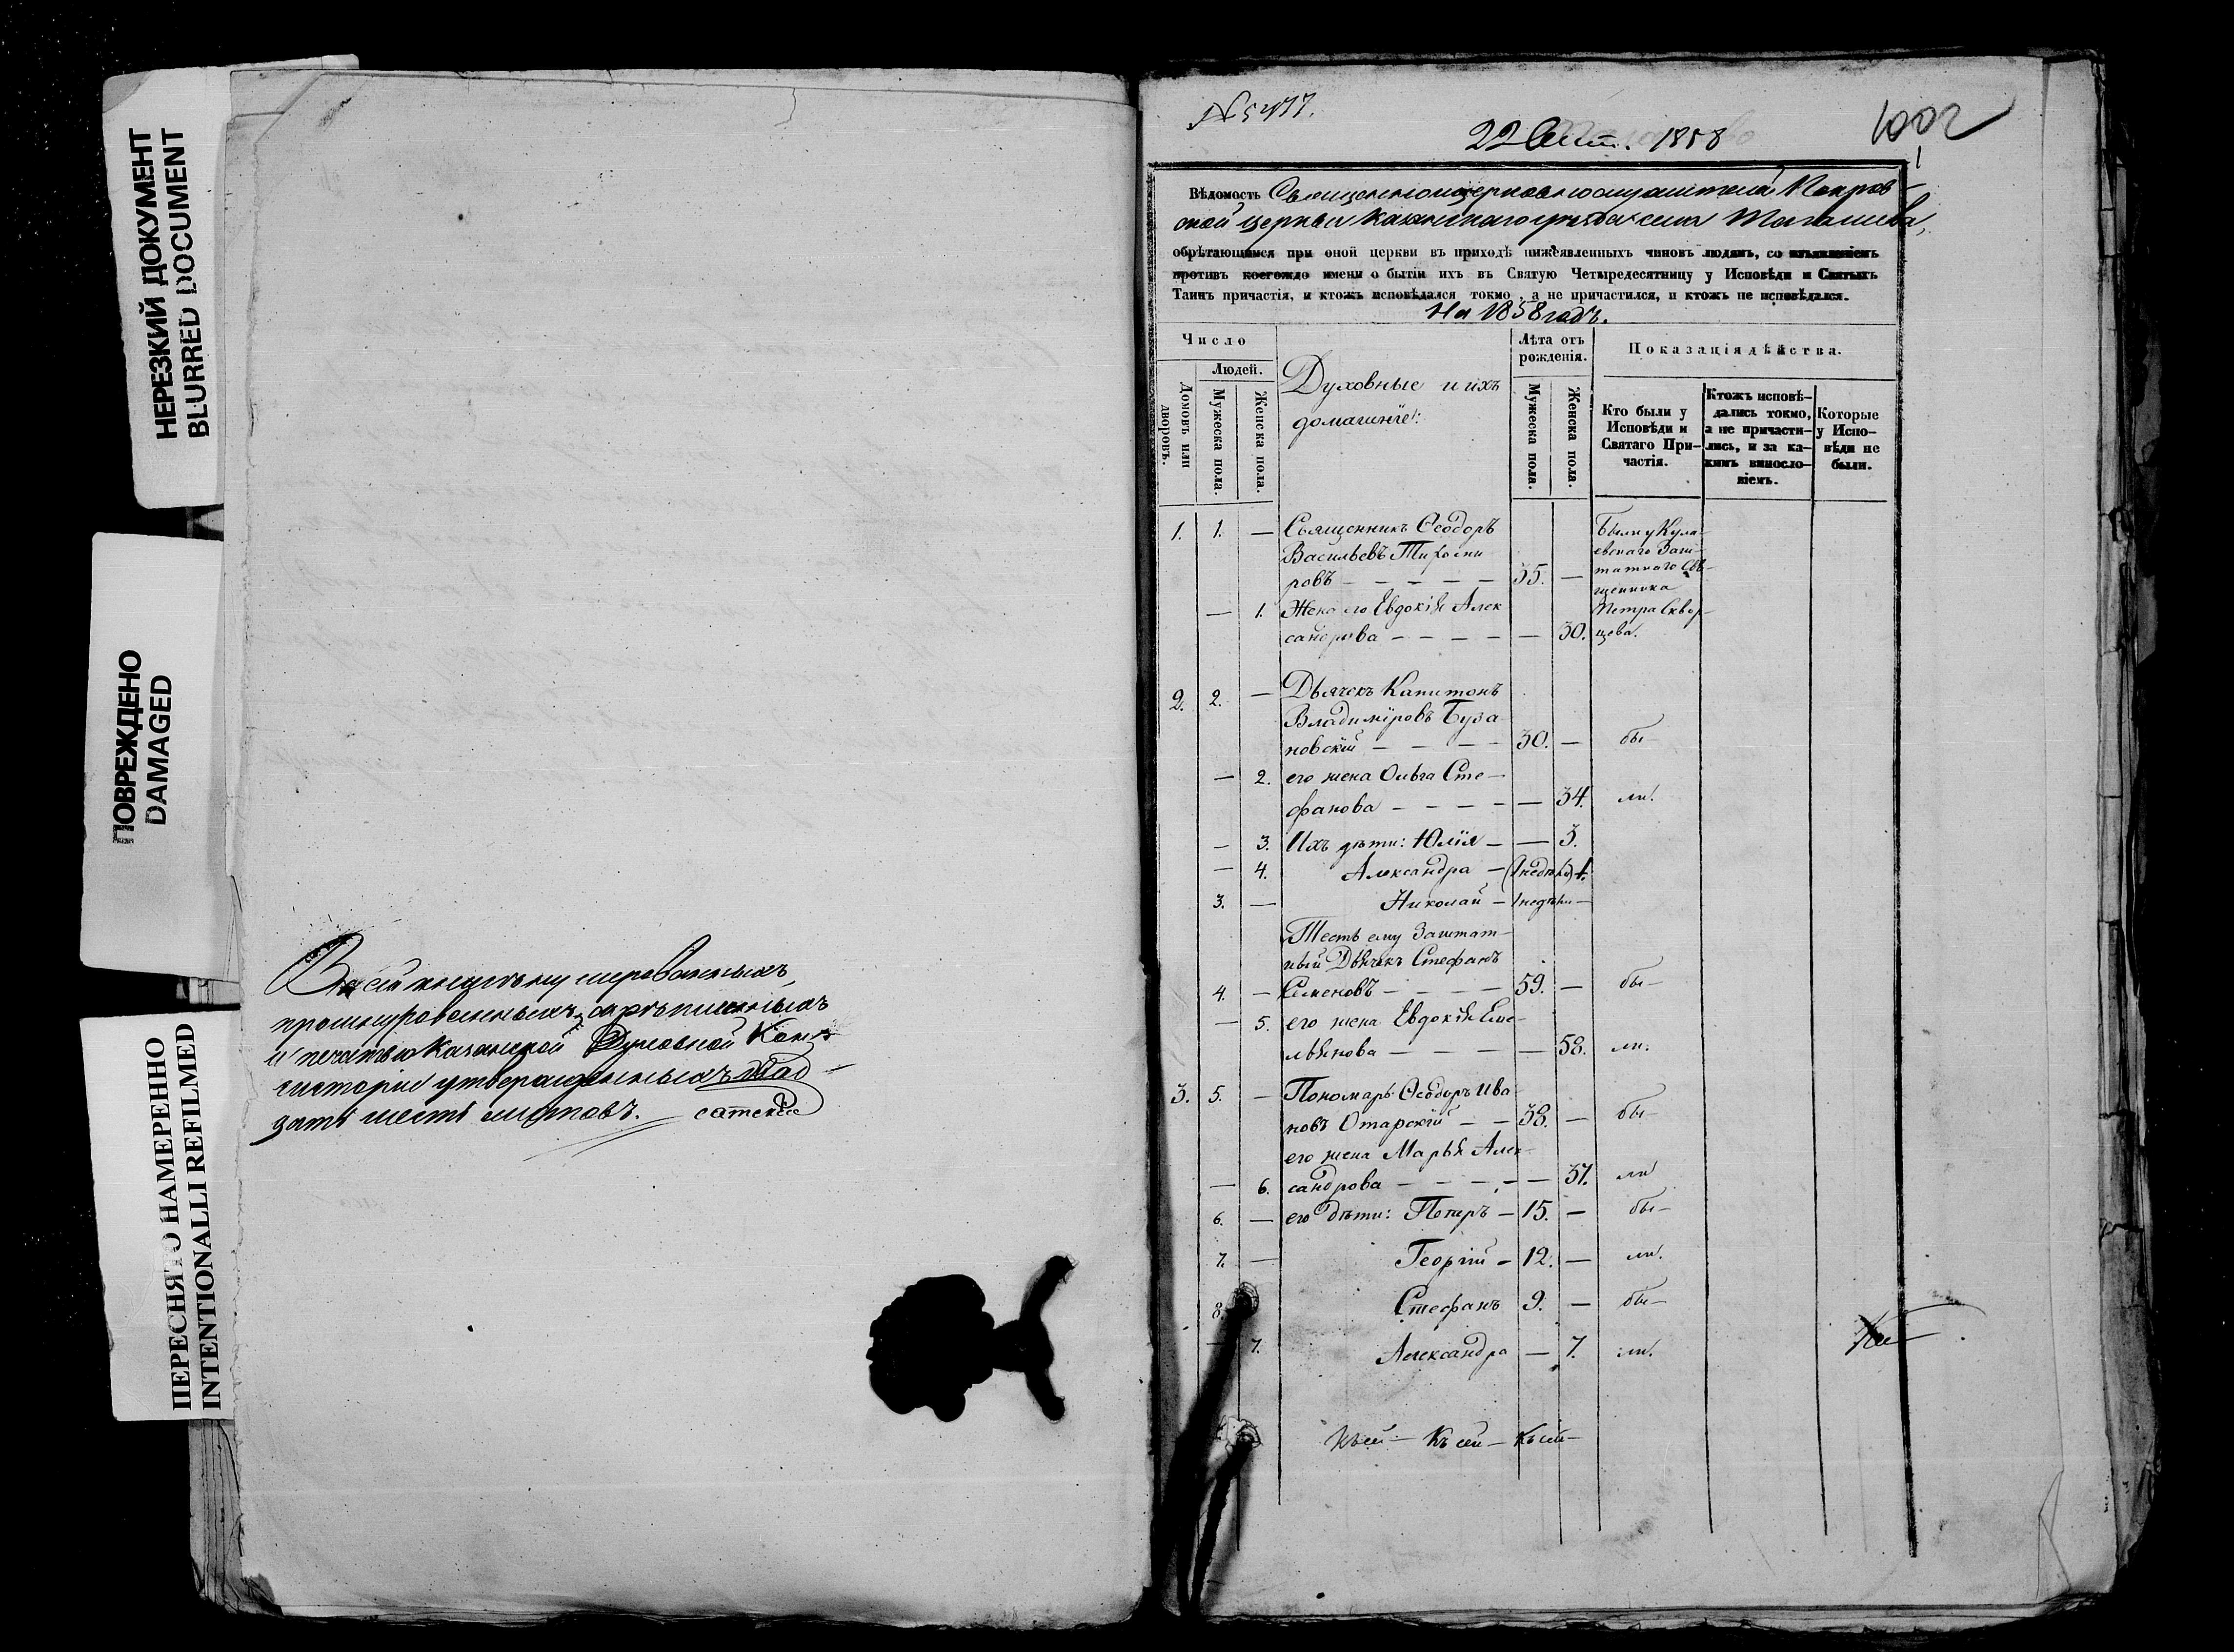 НЕРЕЗКИЙ ДОКУМЕНТ
BLURRED DOCUMENT
ПОВРЕЖДЕНО
DAMAGED
ПЕРЕСНЯТО НАМЕРЕННО
INTENTIONALLI REFILMED
Въ сей книгѣ нумерованныхъ,
прошнурованныхъ, скрѣпленныхъ
и печатью Казанской Духовной Кон-
систоріи утвержденныхъ двад-
цать шесть листовъ.
22 1858
1002
1
Вѣдомость Священноцерковнослужителей Покров-
ской церкви Казанскаго уѣзда села
обрѣтающимся при оной церкви въ приходѣ нижеявленныхъ чиновъ людямъ, со изъявленіемъ
противъ коегождо имени о бытіи ихъ въ Святую Четыредесятницу у Исповѣди и Святыхъ
Таинъ причастія, и ктожъ исповѣдался токмо, а не причастился, и ктожъ не исповѣдался.
На 1858 годъ.
Число
Людей.
Домовъ или дворовъ.
Мужеска пола.
Женска пола.
Духовные и ихъ
домашніе:
Лѣта отъ
рожденія.
Мужеска пола.
Женска пола.
Показація дѣйства.
Кто были у
Исповѣди и
Святаго При-
частія.
Ктожъ исповѣ-
дались токмо,
а не причасти-
лись, и за ка-
кимъ винсло-
віемъ.
Которые
у Испо-
вѣди не
были.
1. 1. — Священникъ Ѳеодоръ Были у Кула-
Васильевъ евскаго Заш-
ровъ — — — — — 35. — татнаго Свя-
щенника
— 1. Жена его Евдокія Алек Петра Сквор-
сандрова — — — — — 30. цева.
2. 2. — Дьячекъ Капитонъ
Владиміровъ Буза-
новскій — — — — 30. — бы-
— 2. его жена Ольга Сте-
фанова — — — — — 34. ли.
— 3. Ихъ дѣти: Юлія — — 3.
— 4. Александра —
3. — Николай —
Тесть ему Заштат-
ный Дьячекъ Стефанъ
4. — Семеновъ — — — — 59. — бы-
— 5. его жена Евдокія Еме-
льянова — — — — 58. ли.
3. 5. — Пономарь Ѳеодоръ Ива
новъ Отарскій — — 38. — бы-
его жена Марья Алек-
— 6. сандрова — — — — — 37. ли
6. — его дѣти: Петръ — 15. — бы-
7. — Георгій — 12. — ли.
8. Стефанъ 9. — бы-
— 7. Александра — 7. ли.
Къ сей — Къ сей — Къ сей —